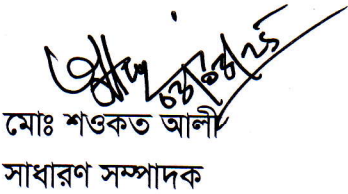 মোঃ শওকত আলী
সাধারণ সম্পাদক